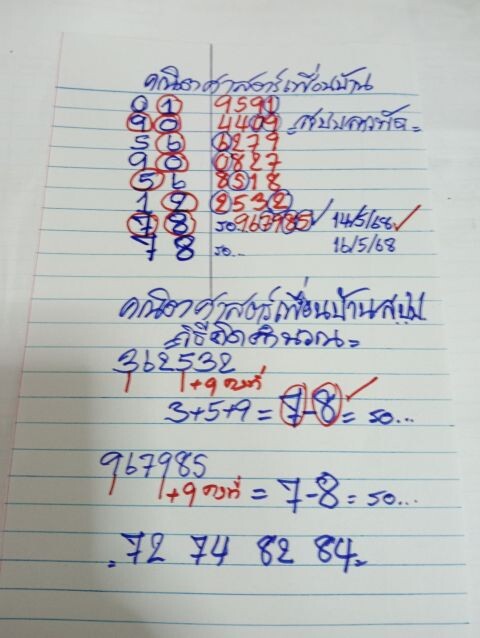 คณิตศาสตร์เพื่อนบ้าน
01 9591
90 4409 =สรุปแนวทาง=
56 6279
90 0827
56 8518
12 2532
78 รอ.967985 ✓ 14/5/68 ✓
78 รอ... 16/5/68
คณิตศาสตร์เพื่อนบ้านสรุป
วิธีคิดคำนวณ=
362532
+9 คงที่
3+5+9 = 7-8 = รอ...
967985
+9 คงที่ = 7-8 = รอ...
= 72 74 82 84 =